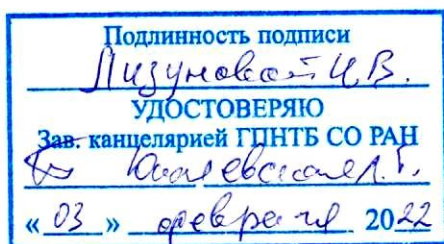 Подлинность подписи
Лизуновой И.В.
УДОСТОВЕРЯЮ
Зав. канцелярией ГПНТБ СО РАН
« 03 » февраля 2022